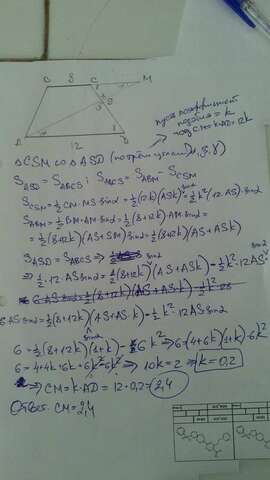 B 8 C M
S
A 12 D
пусть коэффициент
подобия = k
тогда CM = k·AD = 12k
△CSM ∞ △ASD (по трём углам)
S_ASD = S_ABCS; S_ABCS = S_ABM − S_CSM
S_CSM = 1/2 CM·MS sin2 = 1/2(12k)(ASk) sin2 = 1/2 k²(12·AS) sin2
S_ABM = 1/2 BM·AM sin2 = 1/2 (8+12k)·AM sin2 =
= 1/2(8+12k)(AS+SM) sin2 = 1/2(8+12k)(AS+ASk) sin2
S_ASD = S_ABCS ⇒
⇒ 1/2·12·AS sin2 = 1/2(8+12k)(AS+ASk) sin2 − 1/2 k²·12AS sin2
6·AS sin2 = 1/2(8+12k)(AS+AS·k) sin2 − 1/2 k²·12AS sin2
6 = 1/2(8+12k)(1+k) − 6k² ⇒ 6=(4+6k)(1+k)−6k²
6 = 4+4k+6k+6k²−6k² ⇒ 10k=2 ⇒ k=0,2
⇒ CM = k·AD = 12·0,2 = 2,4
Ответ: CM = 2,4